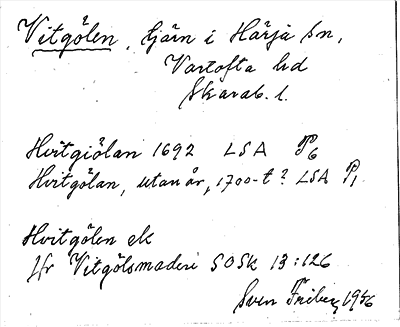 Vitgölen, tjärn i Härja sn,
Vartofta hd
Skarab. l.
Hvitgiölan 1692 LSA P6
Hvitgölan, utan år, 1700-t? LSA P1.
Hvitgölen ek
Jfr Vitgölsmaderi SOSk 13:126
Sven Friberg 1956